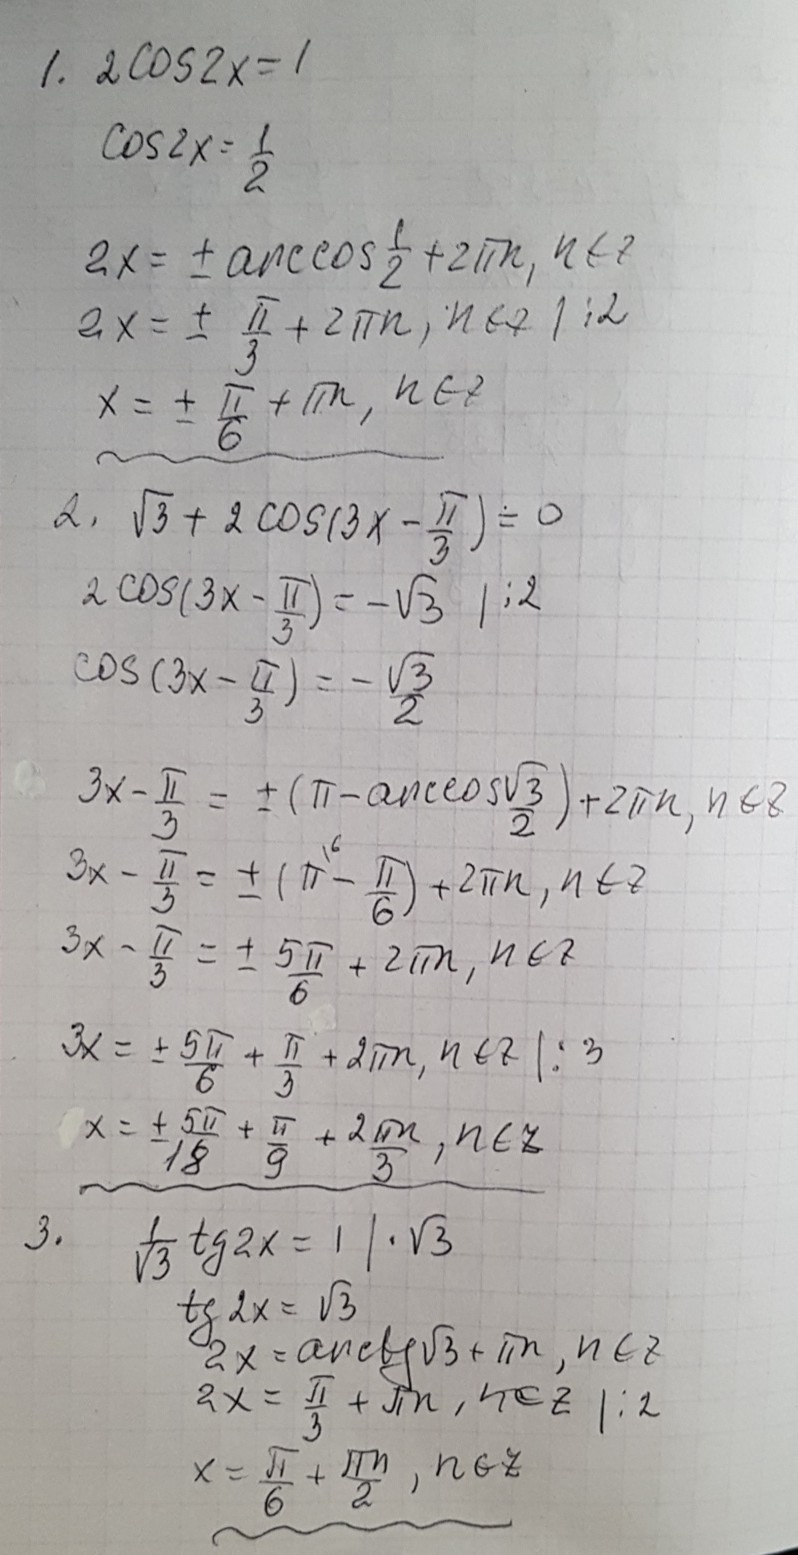 1. 2cos2x = 1
cos2x = 1/2
2x = ± arccos 1/2 + 2πn, n∈z
2x = ± π/3 + 2πn, n∈z | :2
x = ± π/6 + πn, n∈z
2. √3 + 2cos(3x - π/3) = 0
2cos(3x - π/3) = -√3 | :2
cos(3x - π/3) = - √3/2
3x - π/3 = ± (π - arccos √3/2) + 2πn, n∈z
3x - π/3 = ± (π\6 - π/6) + 2πn, n∈z
3x - π/3 = ± 5π/6 + 2πn, n∈z
3x = ± 5π/6 + π/3 + 2πn, n∈z | : 3
x = ± 5π/18 + π/9 + 2πn/3, n∈z
3. 1/√3 tg2x = 1 | · √3
tg2x = √3
2x = arctg√3 + πn, n∈z
2x = π/3 + πn, n∈z | :2
x = π/6 + πn/2, n∈z